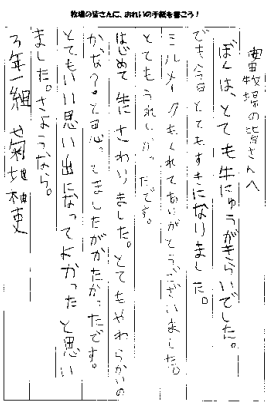 牧場の皆さんに、お礼いの手紙を書こう！
牧場の皆さんへ
ぼくは、とても牛にゅうがきらいでした。
でも、今日とてもすきになりました。
ミルメークをくれてありがとうございました。
とてもうれしかったです。
はじめて牛にさわりました。とてもやわらかいの
かな？と思っとましたがかたかったです。
とてもいい思い出になってよかったと思い
ました。さようなら。
3年一組 菊地